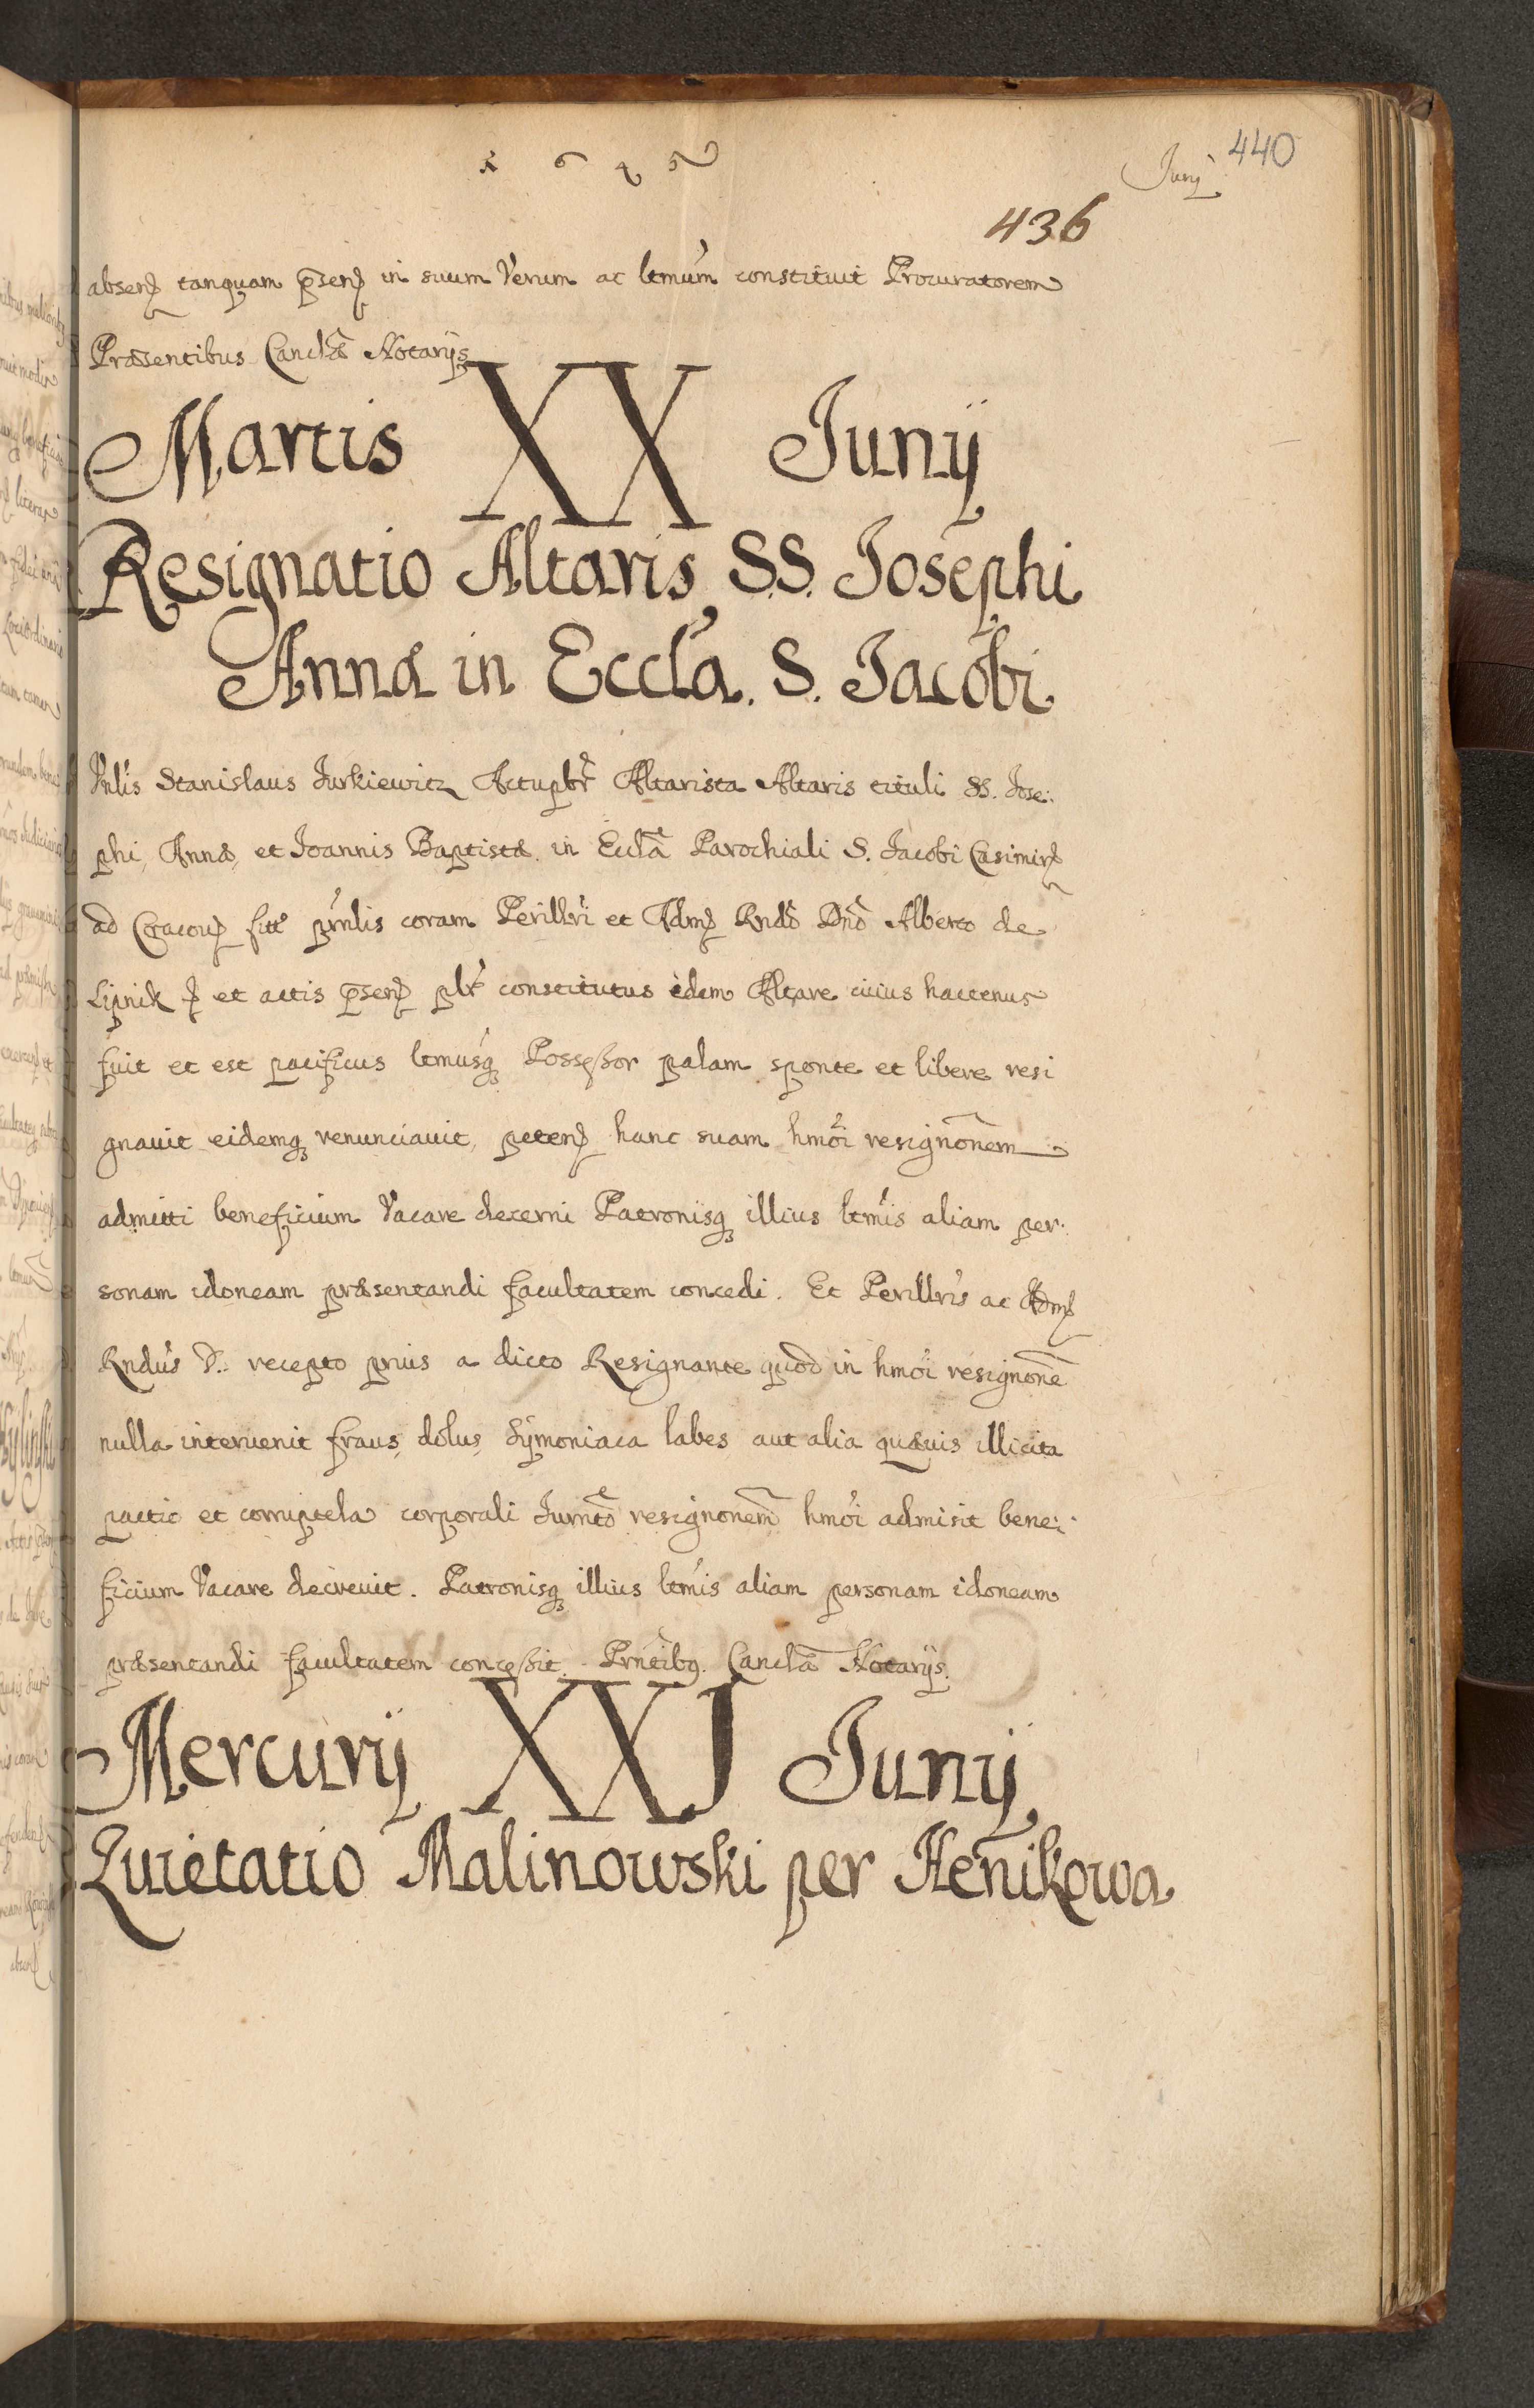 1645
Junij 440
436
absens tanquam pñsens in suum Verum ac ltmum constituit Procuratorem
Præsentibus Canclæ Notarijs
Martis XX Junij
Resignatio Altaris SS. Josephi
Annæ in Eccla. S. Jacobi
Stanislaus Jurkiewicz Altarista Altaris tituli SS. Jose:
phi, Annæ, et Joannis Baptistæ in Ecclã Parochiali S. Jacobi Casimiriẽ
ad Cracouiẽ coram Perillri et Adm Rndo Dño Alberto de
Lipnik et actis pñsen constitutus idem Altare cuius hactenus
fuit et est pacificus ltmusq Possessor palam sponte et libere resi
gnauit eidemq renunciauit, petens hanc suam hmõi resignõnem
admitti beneficium Vacare decerni Patronisq illius ltmis aliam per:
sonam idoneam præsentandi facultatem concedi. Et Perillris ac Adm
Rndus D. recepto prius a dicto Resignante quod in hmõi resignõne
nulla interuenit fraus, dolus, Symoniaca labes aut alia quæuis illicita
pactio et corruptela corporali Jurnto resignonem hmõi admisit bene:
ficium Vacare decreuit. Patronisq illius ltmis aliam personam idoneam
præsentandi facultatem concessit. Prntibq. Canclæ Notarijs.
Mercurij XXJ Junij
Quietatio Malinowski per Henikowa